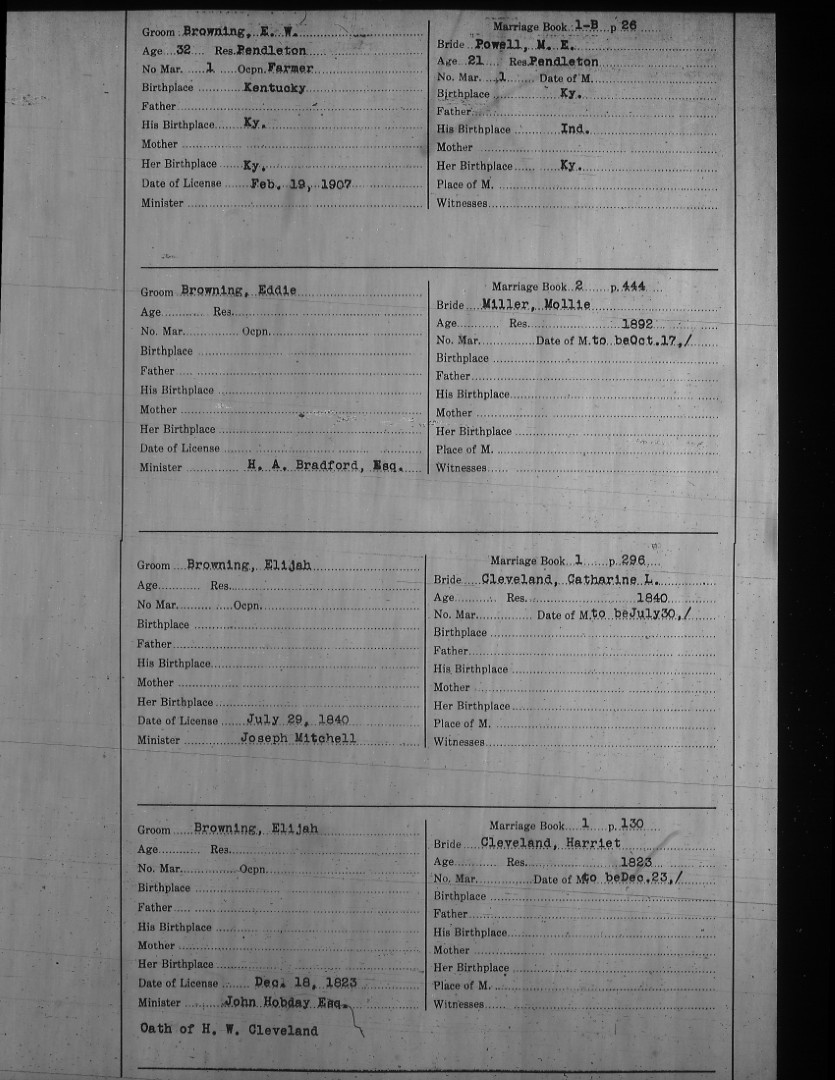 Groom Browning, E. W.
Age 32 Res. Pendleton
No Mar. 1 Ocpn. Farmer
Birthplace Kentucky
Father
His Birthplace Ky.
Mother
Her Birthplace Ky.
Date of License Feb. 19, 1907
Minister
Marriage Book 1-B p. 26
Bride Powell, M. E.
Age 21 Res. Pendleton
No. Mar. 1 Date of M.
Birthplace Ky.
Father
His Birthplace Ind.
Mother
Her Birthplace Ky.
Place of M.
Witnesses
Groom Browning, Eddie
Age Res.
No. Mar. Ocpn.
Birthplace
Father
His Birthplace
Mother
Her Birthplace
Date of License
Minister H. A. Bradford, Esq.
Marriage Book 2 p. 444
Bride Miller, Mollie
Age Res. 1892
No. Mar. Date of M. to be Oct. 17, /
Birthplace
Father
His Birthplace
Mother
Her Birthplace
Place of M.
Witnesses
Groom Browning, Elijah
Age Res.
No Mar. Ocpn.
Birthplace
Father
His Birthplace
Mother
Her Birthplace
Date of License July 29, 1840
Minister Joseph Mitchell
Marriage Book 1 p. 296
Bride Cleveland, Catharine L.
Age Res. 1840
No. Mar. Date of M. to be July 30, /
Birthplace
Father
His Birthplace
Mother
Her Birthplace
Place of M.
Witnesses
Groom Browning, Elijah
Age Res.
No. Mar. Ocpn.
Birthplace
Father
His Birthplace
Mother
Her Birthplace
Date of License Dec. 18, 1823
Minister John Hobday Esq.
Oath of H. W. Cleveland
Marriage Book 1 p. 130
Bride Cleveland, Harriet
Age Res. 1823
No. Mar. Date of M. to be Dec. 23, /
Birthplace
Father
His Birthplace
Mother
Her Birthplace
Place of M.
Witnesses